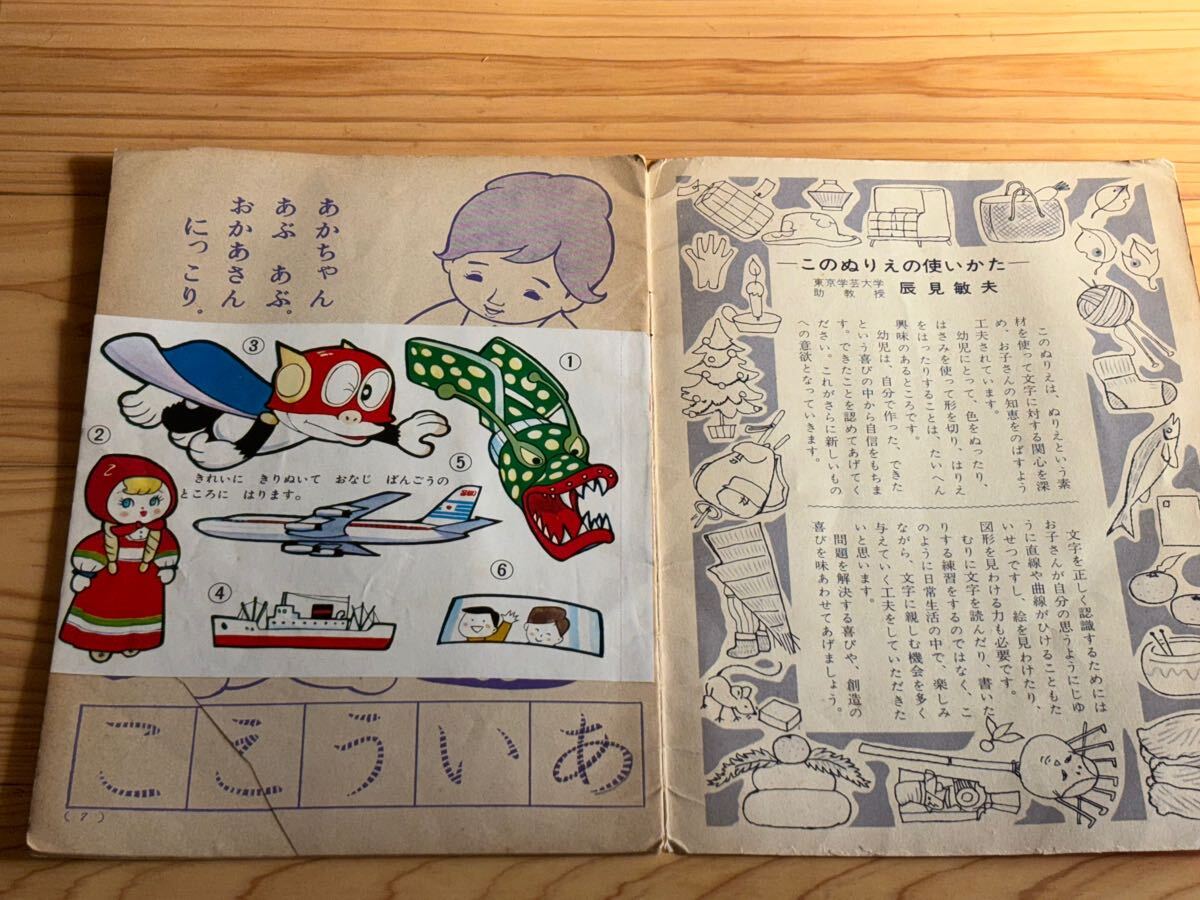 あかちゃん
あぶ　あぶ。
おかあさん
にっこり。
③
①
②
⑤
きれいに　きりぬいて　おなじ　ばんごうの
ところに　はります。
④
⑥
こ
え
う
い
あ
(7)
―このぬりえの使いかた―
東京学芸大学
助教授
辰見敏夫
このぬりえは、ぬりえという素
材を使って文字に対する関心を深
め、お子さんの知恵をのばすよう
工夫されています。
幼児にとって、色をぬったり、
はさみを使って形を切り、はりえ
をはったりすることは、たいへん
興味のあるところです。
幼児は、自分で作った、できた
という喜びの中から自信をもちま
す。できたことを認めてあげてく
ださい。これがさらに新しいもの
への意欲となっていきます。
文字を正しく認識するためには
お子さんが自分の思うようにじゆ
うに直線や曲線がひけることもた
いせつですし、絵を見わけたり、
図形を見わける力も必要です。
むりに文字を読んだり、書いた
りする練習をするのではなく、こ
のように日常生活の中で、楽しみ
ながら、文字に親しむ機会を多く
与えていく工夫をしていただきた
いと思います。
問題を解決する喜びや、創造の
喜びを味あわせてあげましょう。